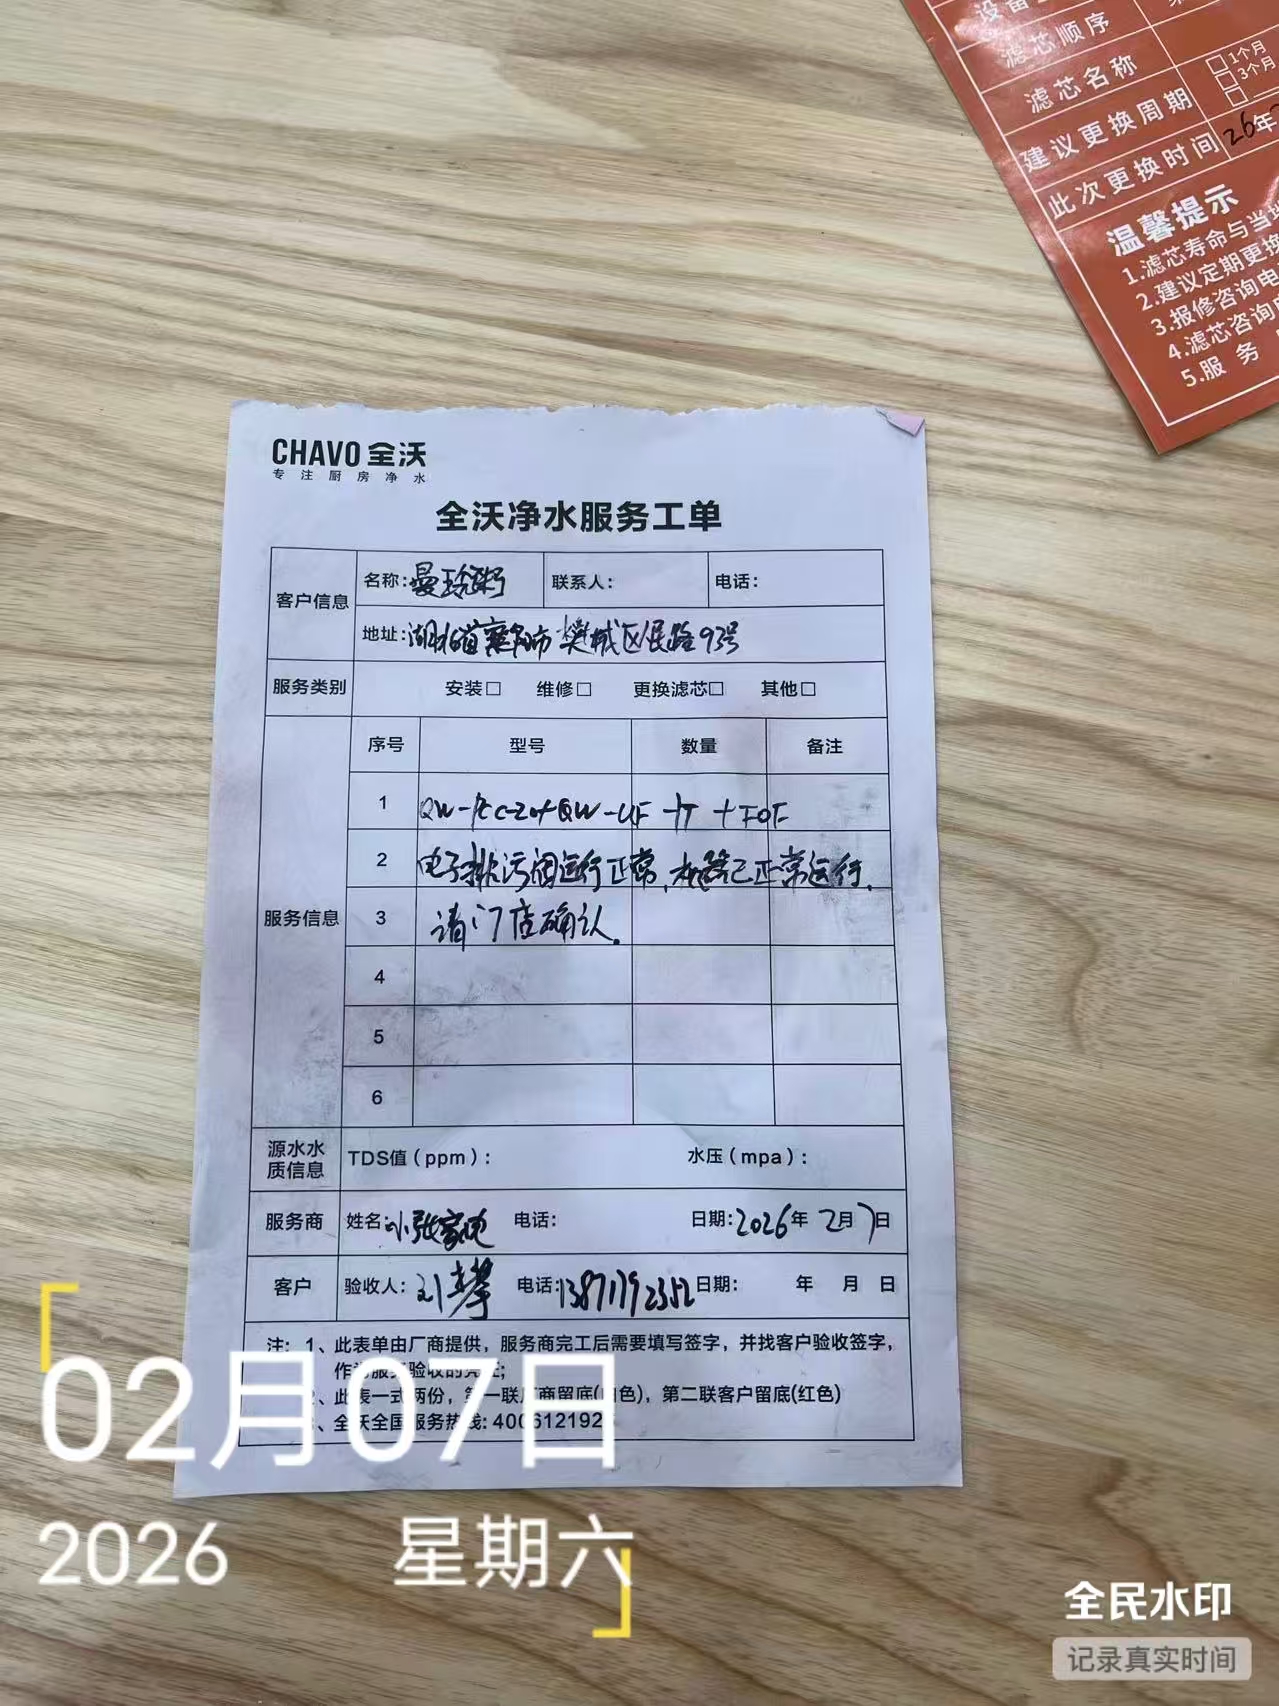 设备
滤芯顺序
滤芯名称
建议更换周期
□1个月
□3个月
□
此次更换时间 26年
温馨提示
1.滤芯寿命与当地
2.建议定期更换
3.报修咨询电
4.滤芯咨询
5.服务
CHAVO 全沃
专注厨房净水
全沃净水服务工单
客户信息 名称:曼玲粥 联系人: 电话:
地址:湖北省襄阳市樊城区人民路93号
服务类别 安装□ 维修□ 更换滤芯□ 其他□
服务信息 序号 型号 数量 备注
1 QW-UF
2 电子排污阀运行正常,机器已正常运行.
3 请门店确认.
4
5
6
源水水质信息 TDS值(ppm): 水压(mpa):
服务商 姓名:小张家电 电话: 日期:2026年2月7日
客户 验收人:刘 电话:13871792352 日期: 年 月 日
注: 1、此表单由厂商提供，服务商完工后需要填写签字，并找客户验收签字，
作为服务验收的凭证;
2、此表一式两份，第一联厂商留底(白色)，第二联客户留底(红色)
3、全沃全国服务热线: 400612192
02月07日
2026 星期六
全民水印
记录真实时间